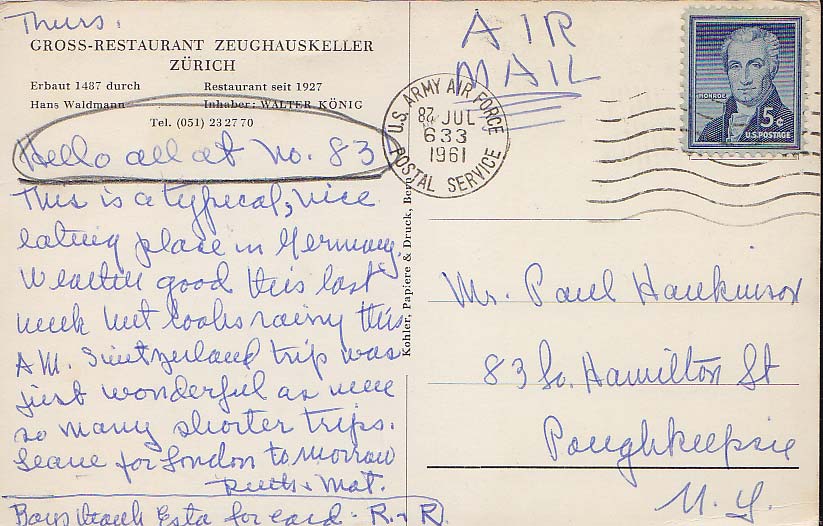 Thurs.
GROSS-RESTAURANT ZEUGHAUSKELLER
ZÜRICH
Erbaut 1487 durch Restaurant seit 1927
Hans Waldmann Inhaber: WALTER KÖNIG
Tel. (051) 23 27 70
Hello all at No. 83
This is a typical, nice
eating place in Germany.
Weather good this last
week but looks rainy this
A.M. Switzerland trip was
just wonderful as were
so many shorter trips.
Leave for London tomorrow
Ruth & Mat.
Boys thank Esta for card - R. & R.
Kohler, Papiere & Druck, Bern
AIR
MAIL
U.S. ARMY AIR FORCE
28 JUL
633
1961
POSTAL SERVICE
MONROE
5¢
U.S. POSTAGE
Mr. Paul Hankinson
83 So. Hamilton St
Poughkeepsie
N.Y.